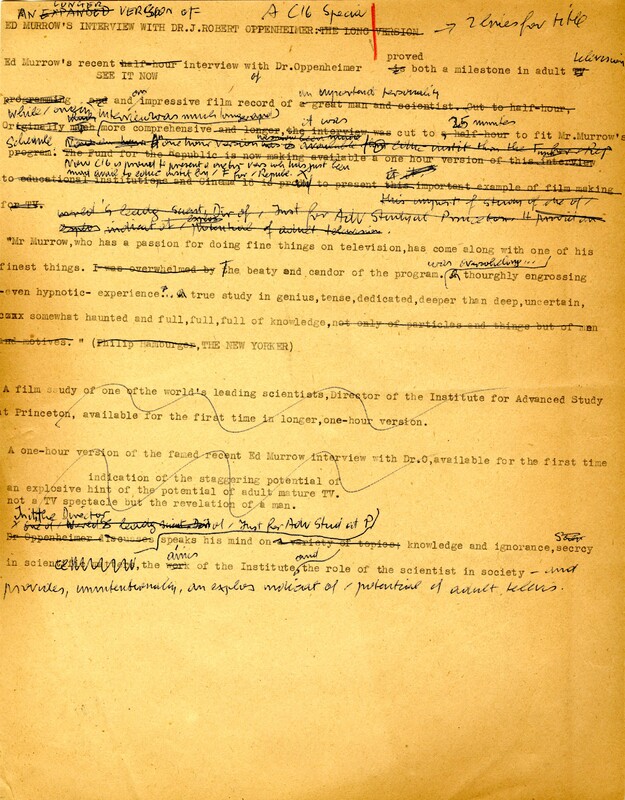 LONGER
AN EXPANDED VERSION OF A C16 Special
ED MURROW'S INTERVIEW WITH DR.J.ROBERT OPPENHEIMER:THE LONG VERSION → 2 lines for title
proved television
Ed Murrow's recent half-hour interview with Dr.Oppenheimer is both a milestone in adult
SEE IT NOW of an important personality
programming and an impressive film record of a great man and scientist. Cut to half-hour,
while / interview was much longer it was 25 minutes
Originally much more comprehensive and longer, the interview was cut to a half-hour to fit Mr.Murrow's
Schedule
program. The Fund for the Republic is now making available a one hour version of this interview
Now C16 is proud to present
to educational institutions and Cinema 16 is proud to present this important example of film making
for TV. this import of study of one of /
world's leadg Scient, Dir of / Inst for Adv Study at Princeton.
indicat of / potential of adult television.
"Mr Murrow,who has a passion for doing fine things on television,has come along with one of his
was overwhelming...
finest things. I was overwhelmed by The beaty and candor of the program. A thourghly engrossing
-even hypnotic- experience... A true study in genius,tense,dedicated,deeper than deep,uncertain,
caxx somewhat haunted and full,full,full of knowledge,not only of particles and things but of man
and motives. " (Philip Hamburger,THE NEW YORKER)
A film study of one ofthe world's leading scientists,Director of the Institute for Advanced Study
at Princeton, available for the first time in longer,one-hour version.
A one-hour version of the famed recent Ed Murrow interview with Dr.O,available for the first time
indication of the staggering potential of
an explosive hint of the potential of adult mature TV.
not a TV spectacle but the revelation of a man.
the Director
one of / World's leadg of / Inst for Adv Stud at P)
Dr Oppenheimer discusses speaks his mind on a variety of topics: knowledge and ignorance, secrcy
aims and
in science, the work of the Institute, the role of the scientist in society – and
provides, unintentionally, an explos indicat of / potential of adult televis.